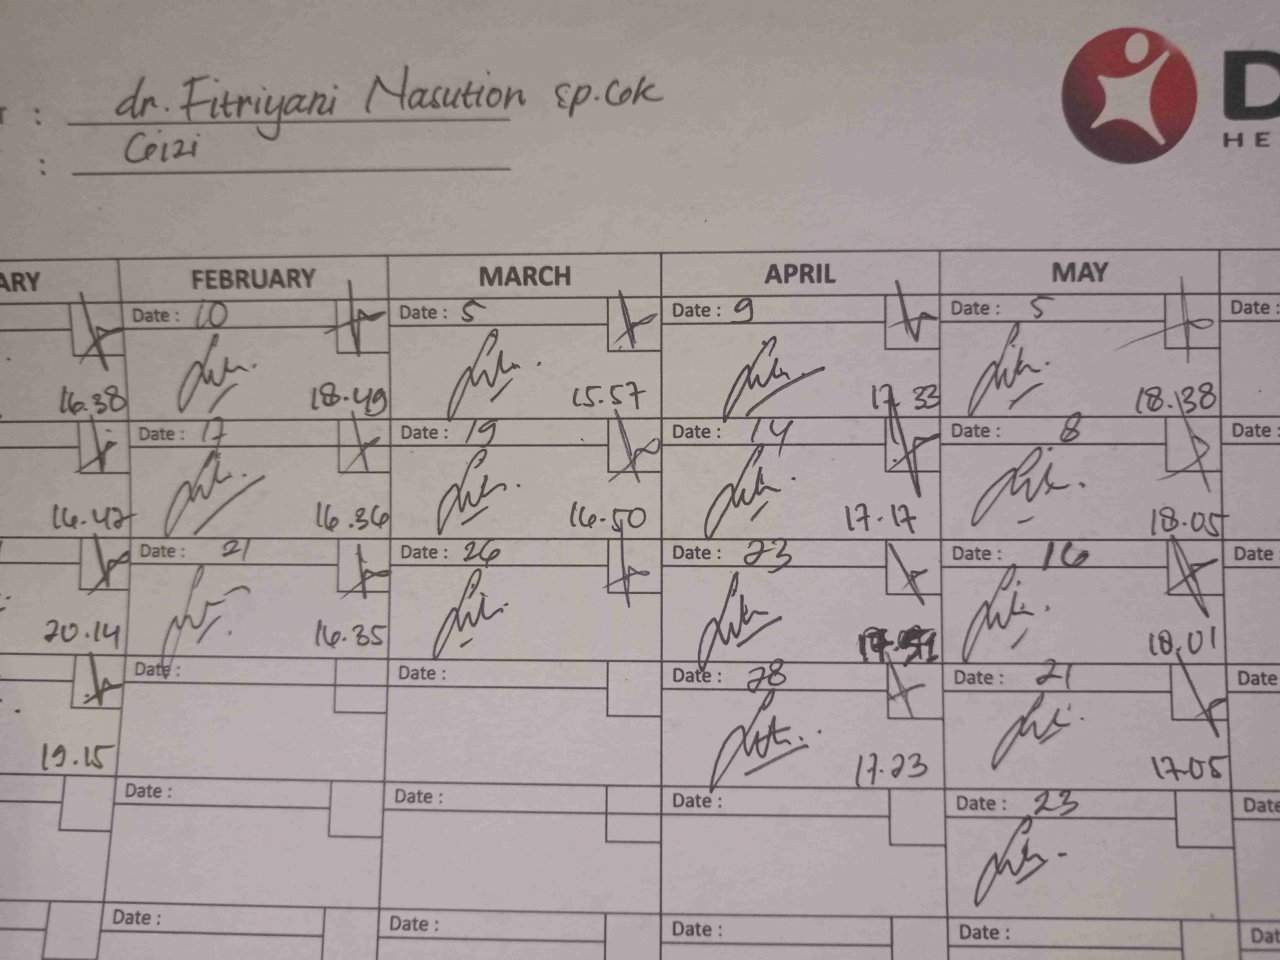 : dr. Fitriyani Nasution sp.Gk
: Gizi
D
HE
ARY FEBRUARY MARCH APRIL MAY
Date : 10 Date : 5 Date : 9 Date : 5 Date :
16.38 18.49 15.57 17 33 18.38
Date : 17 Date : 19 Date : 14 Date : 8 Date :
16.42 16.36 16.50 17.17 18.05
Date : 21 Date : 26 Date : 23 Date : 16 Date
20.14 16.35 18.01
Date : Date : Date : 28 Date : 21 Date
19.15 17.23 17.05
Date : Date : Date : Date : 23 Date
Date : Date : Date : Date : Dat